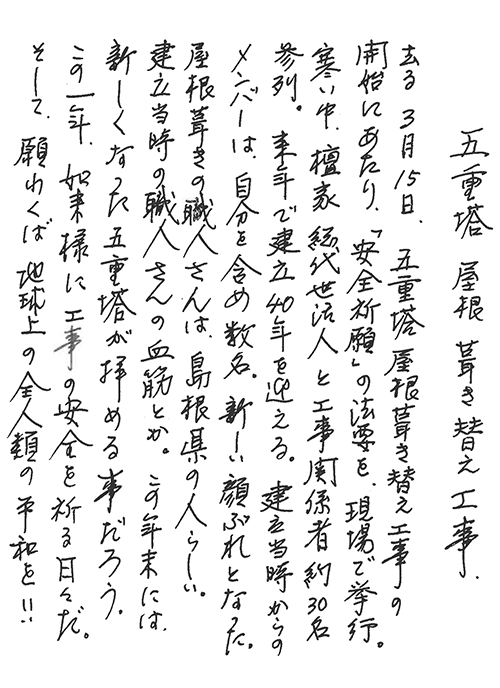 五重塔 屋根 葺き替え工事.
去る3月15日、五重塔屋根葺き替え工事の
開始にあたり、「安全祈願」の法要を、現場で挙行。
寒い中、檀家総代世話人と工事関係者約30名
参列。 来年で建立40年を迎える。 建立当時からの
メンバーは、自分を含め数名。新しい顔ぶれとなった。
屋根葺きの職人さんは、島根県の人らしい。
建立当時の職人さんの血筋とか。 この年末には、
新しくなった五重塔が拝める事だろう。
この一年、如来様に工事の安全を祈る日々だ。
そして、願わくば地球上の全人類の平和を!!